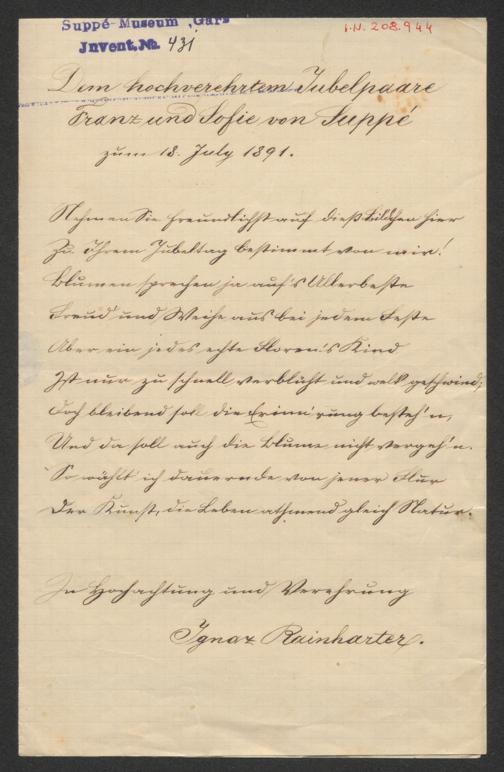 Suppé-Museum, Gars
I.N. 208.944
Jnvent.№. 431
Dem hochverehrtem Jubelpaare
Franz und Sofie von Suppé
zum 18. July 1891.
Nehmen Sie freundlichst auf dieß Bildchen hier
Zu Ihrem Jubeltag bestimmt von mir!
Blumen sprechen ja auf's Allerbeste
Freud' und Weihe aus bei jedem Feste
Aber ein jedes echte Floren's Kind
Ist nur zu schnell verblüht und welk geschwind;
Doch bleibend soll die Erinn'rung besteh'n,
Und da soll auch die Blume nicht vergeh'n.
So wählt' ich dauernde von jener Flur
Der Kunst, die Leben athmend gleich Natur.
In Hochachtung und Verehrung
Ignaz Rainharter.